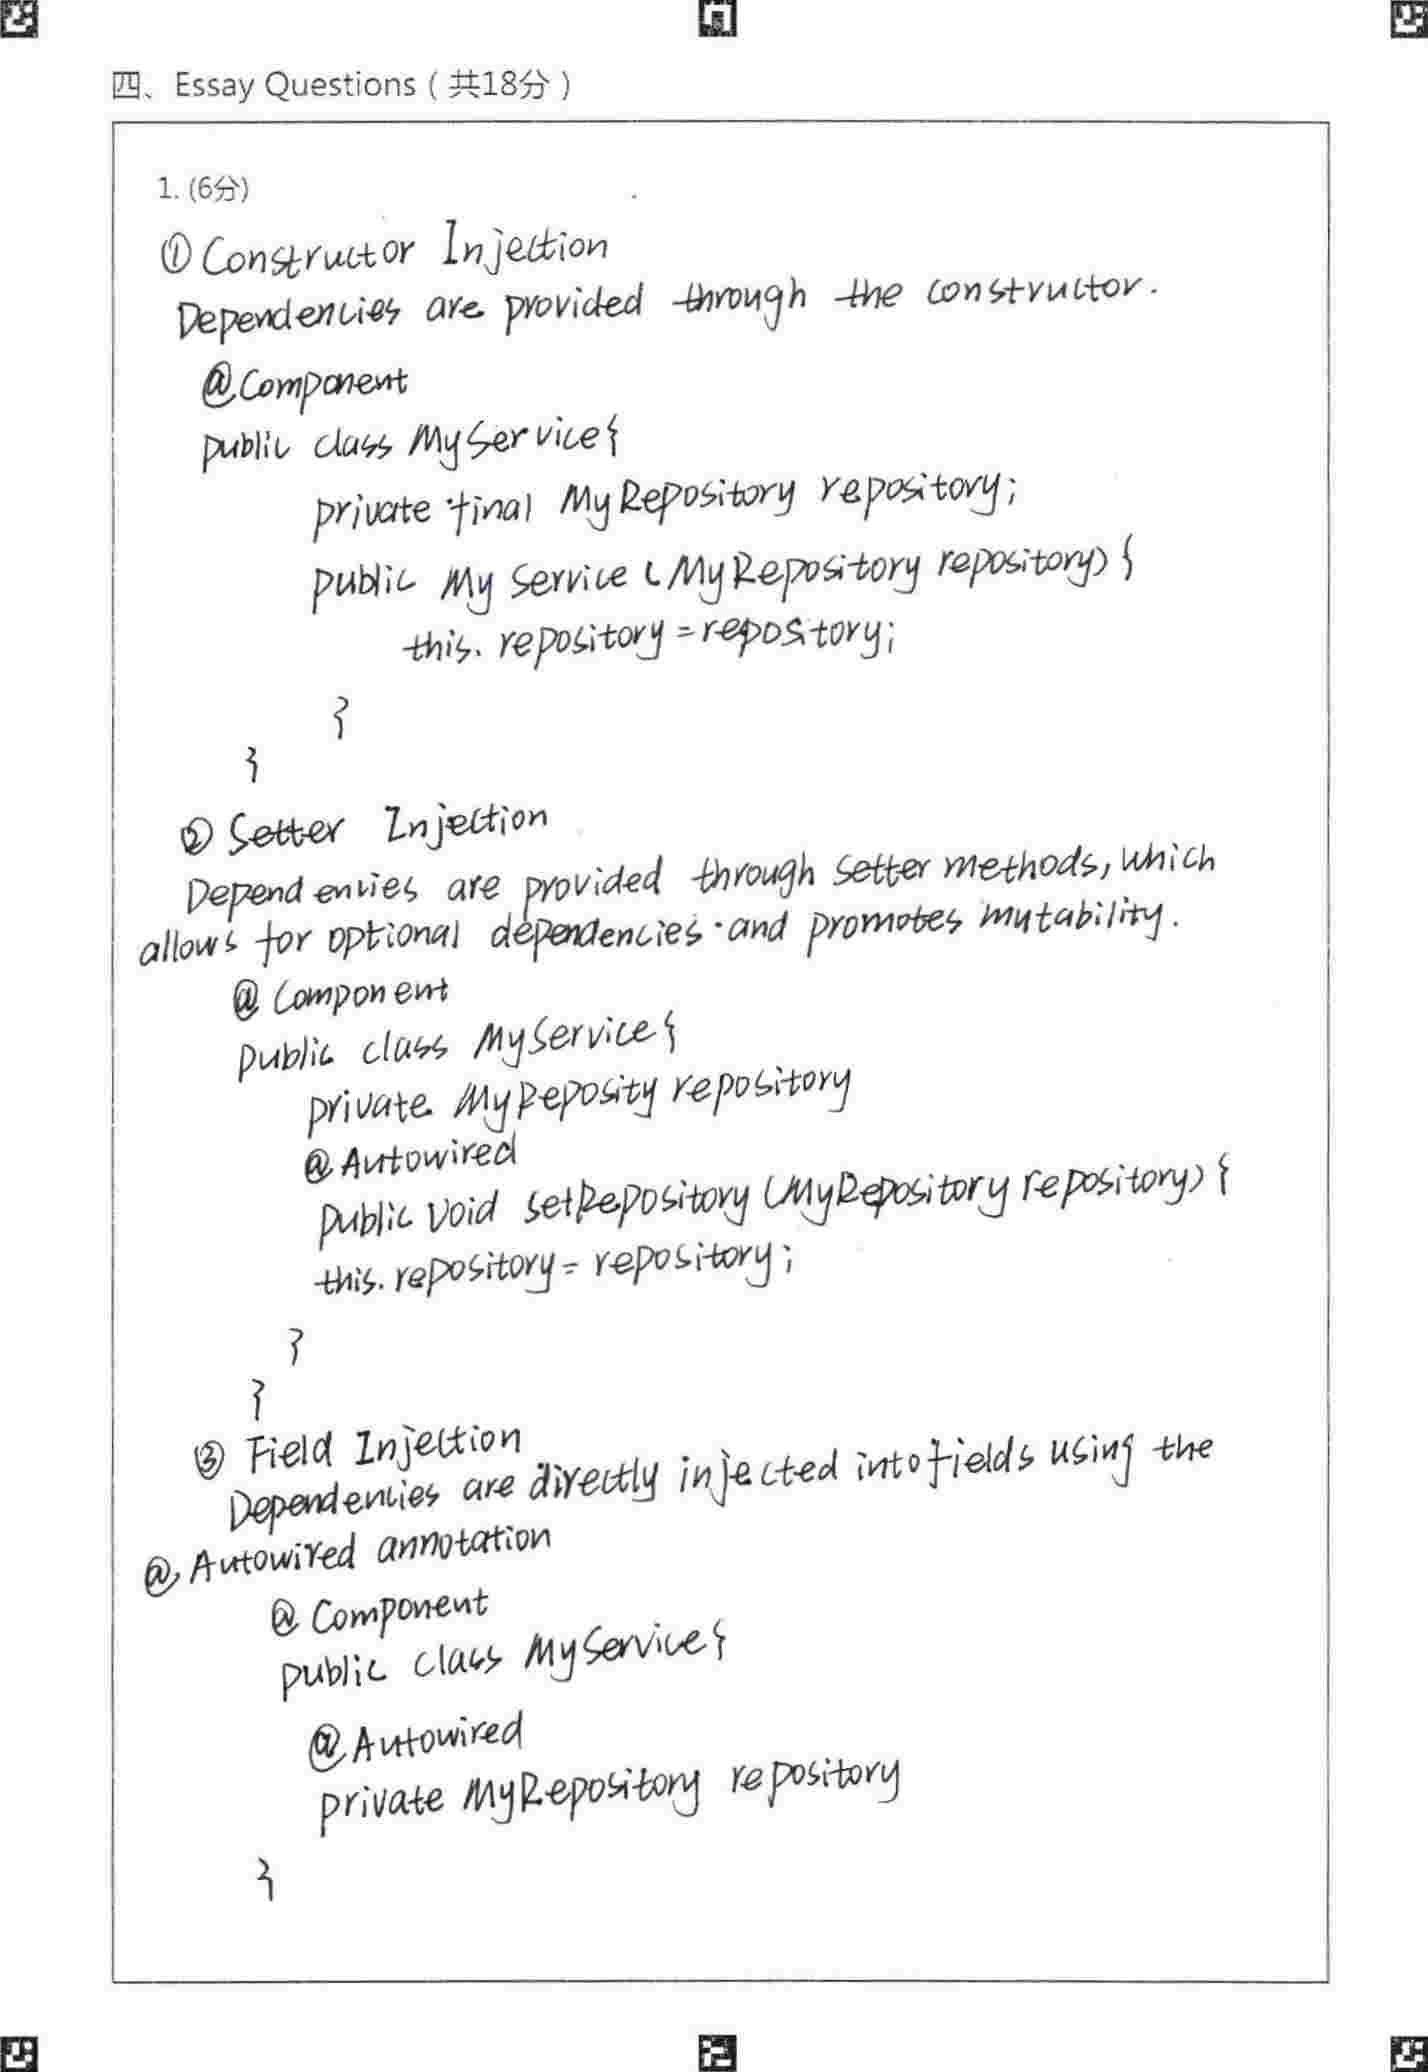 四、Essay Questions（共18分）
1. (6分)
① Constructor Injection
Dependencies are provided through the constructor.
@Component
public class MyService{
private final MyRepository repository;
public MyService(MyRepository repository){
this.repository=repository;
}
}
② Setter Injection
Dependencies are provided through setter methods, which
allows for optional dependencies and promotes mutability.
@Component
public class MyService{
private MyReposity repository
@Autowired
public void setRepository(MyRepository repository){
this.repository=repository;
}
}
③ Field Injection
Dependencies are directly injected into fields using the
@Autowired annotation
@Component
public class MyService{
@Autowired
private MyRepository repository
}